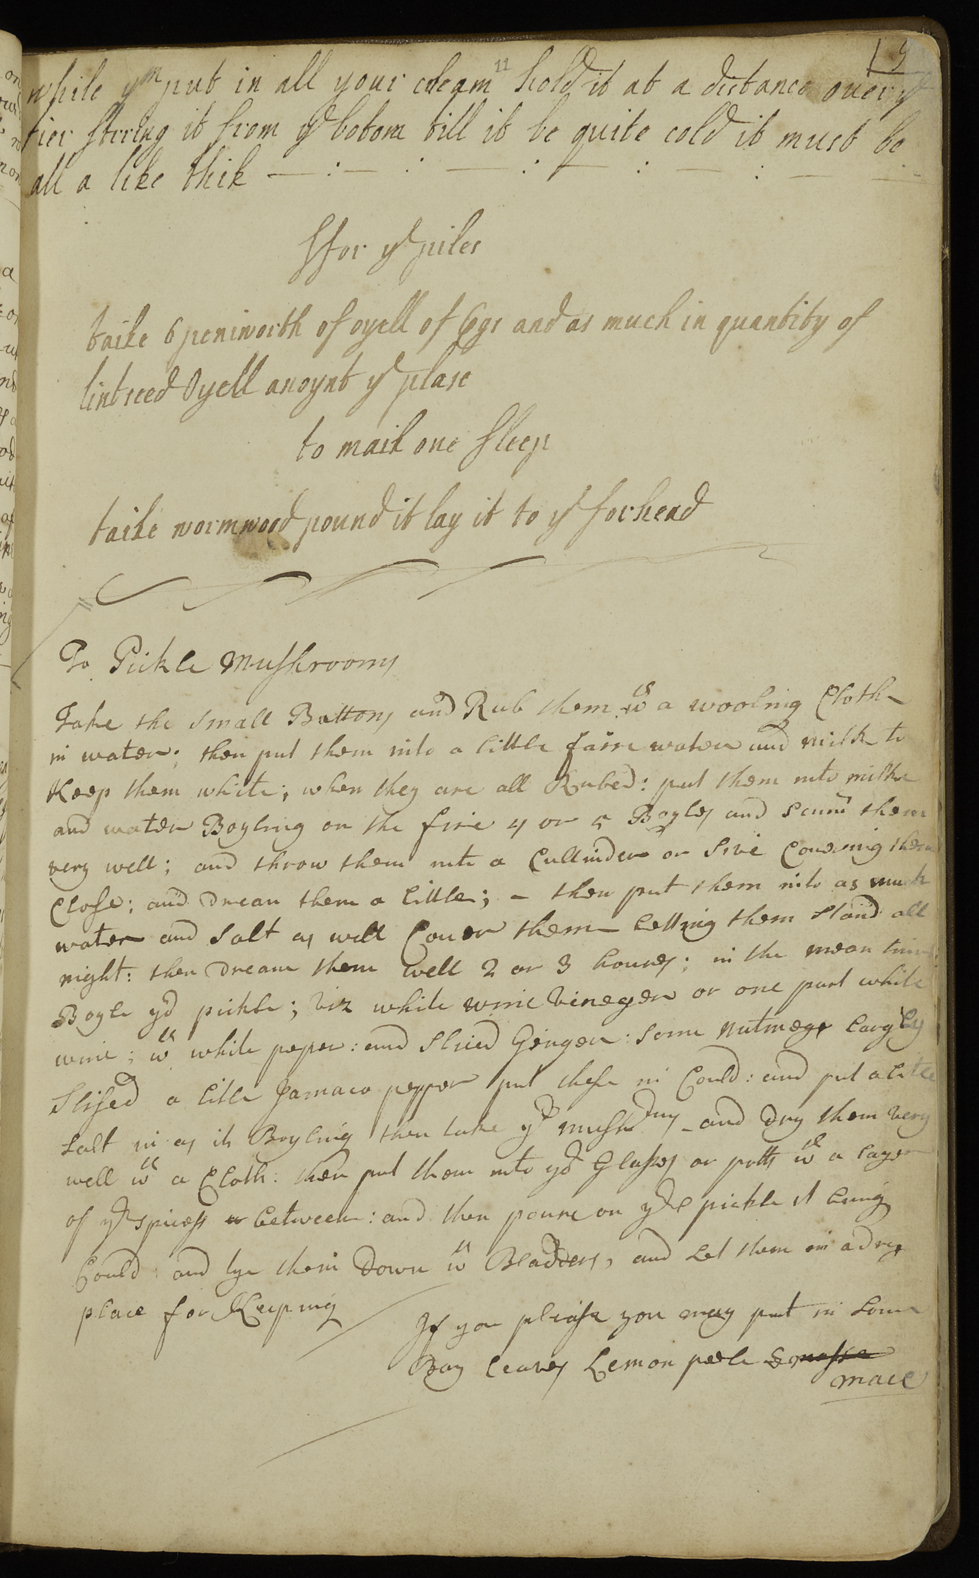 19
while yᵐ put in all your cream hold it at a distance over yᵉ
fier stering it from yᵉ botom till it be quite cold it must be
all a like thik
ffor yᵉ piles
taike 6 peniworth of oyell of Egs and as much in quantity of
lintseed Oyell anoynt yᵉ plase
to maik one sleep
taike wormwood pound it lay it to yᵉ forhead
To Pickle Mushrooms
Take the small Buttons and Rub them wᵗʰ a wooling Cloth
in water; then put them into a little faire water and milk to
Keep them white; when they are all Rubed: put them into milke
and water Boyling on the fire 4 or 5 Boyles and Scum them
very well; and throw them into a Cullinder or Sive Covering them
Close; and drean them a little; – then put them into as much
water and Salt as will Cover them letting them Stand all
night: then Dream them well 2 or 3 houres; in the mean time
Boyle yᵉ pickle; viz white wine Vineger or one part white
wine; wᵗʰ white peper: and Sliced Ginger: Some Nutmegs largely
Slised a litle Jamaca pepper put these in Could: and put a little
Salt in as it's Boyling then take yᵉ mushᵐˢ and dry them very
well wᵗʰ a Cloth: then put them into yᵉ Glasses or potts wᵗʰ a layer
of yᵉ spices between: and then poure on yᵉ pickle it being
Could and tye them down wᵗʰ Bladders, and Let them in a dry
place for Keeping
If you please you may put in some
Bay leaves Lemon peele & masse
mace